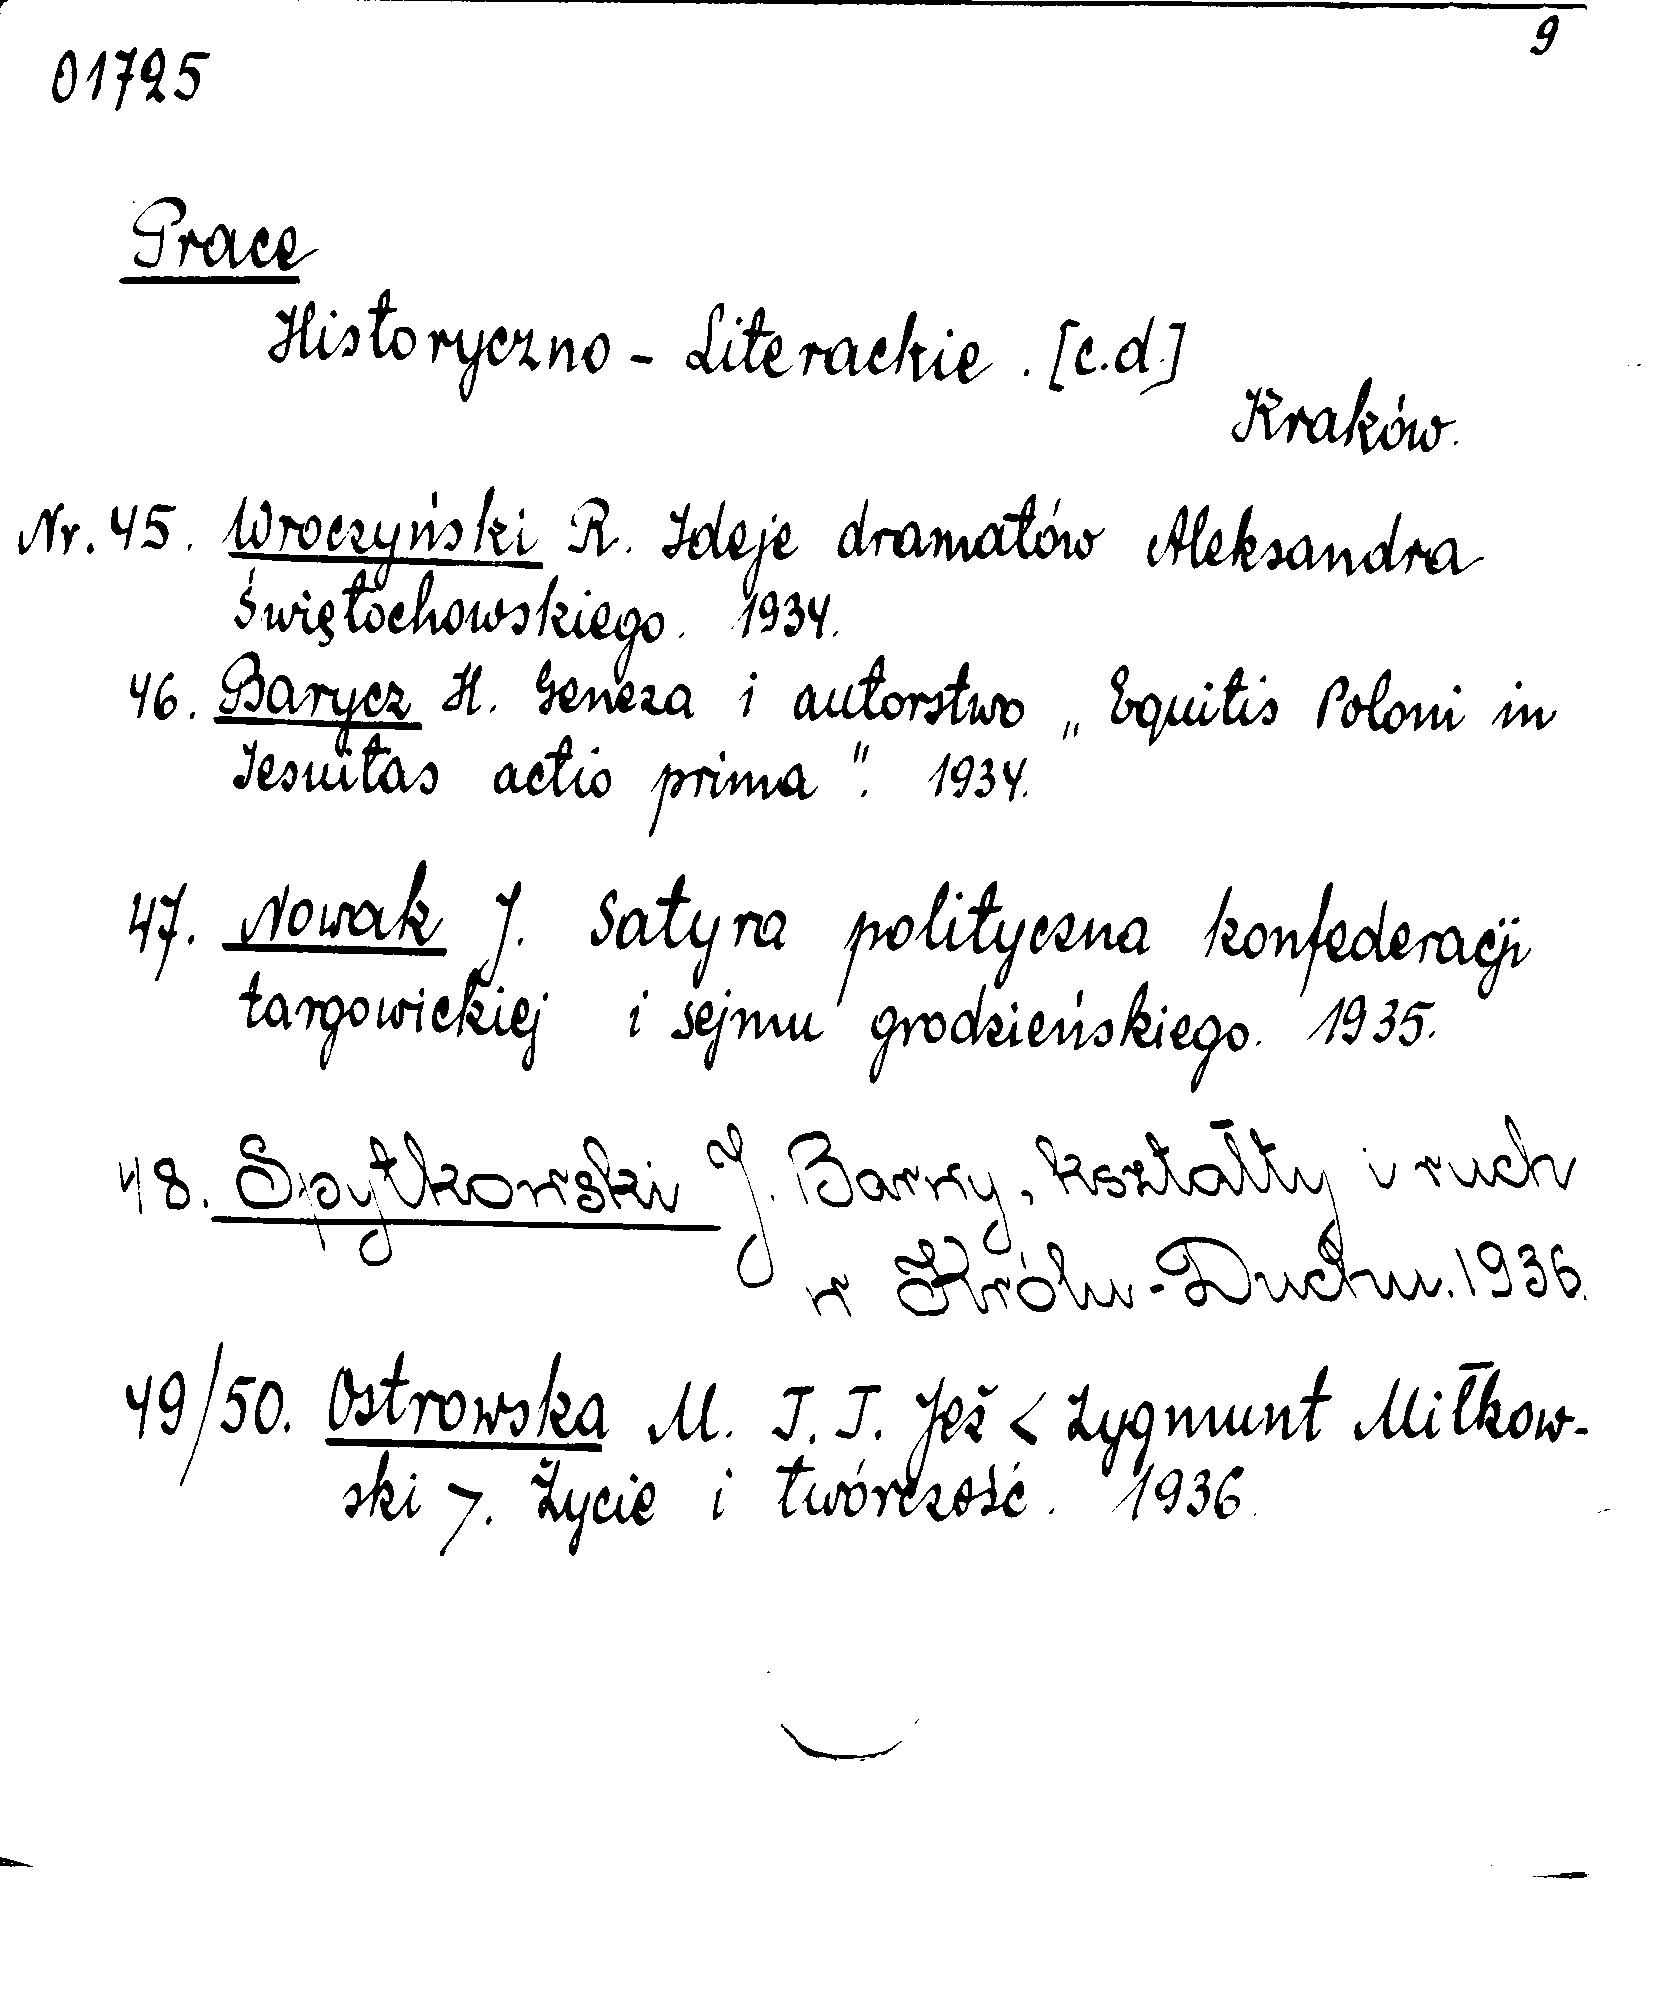 9
01725
Prace
Historyczno - Literackie. [c.d.]
Kraków.
Nr. 45. Wroczyński R. Ideje dramatów Aleksandra
Świętochowskiego. 1934.
46. Barycz H. Geneza i autorstwo „Equitis Poloni in
Iesuitas actio prima". 1934.
47. Nowak J. Satyra polityczna konfederacji
targowickiej i sejmu grodzieńskiego. 1935.
48. Spytkowski J. Barwy, kształty i ruch
w Królu-Duchu. 1936.
49/50. Ostrowska M. T. T. Jeż < Zygmunt Miłkow-
ski >. Życie i twórczość. 1936.